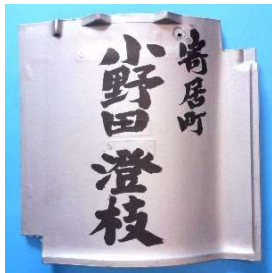 寄居町
小野田澄枝